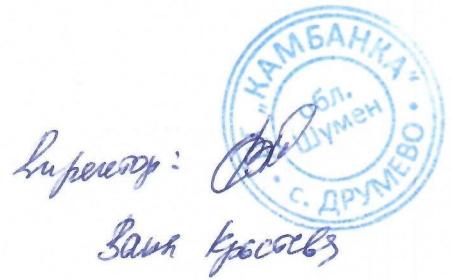 „КАМБАНКА“
обл.
Шумен
• с. ДРУМЕВО •
Директор:
Ваня Кръстева